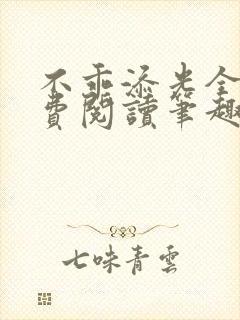 不乖添光全
費閱讀筆趣
七味青雲